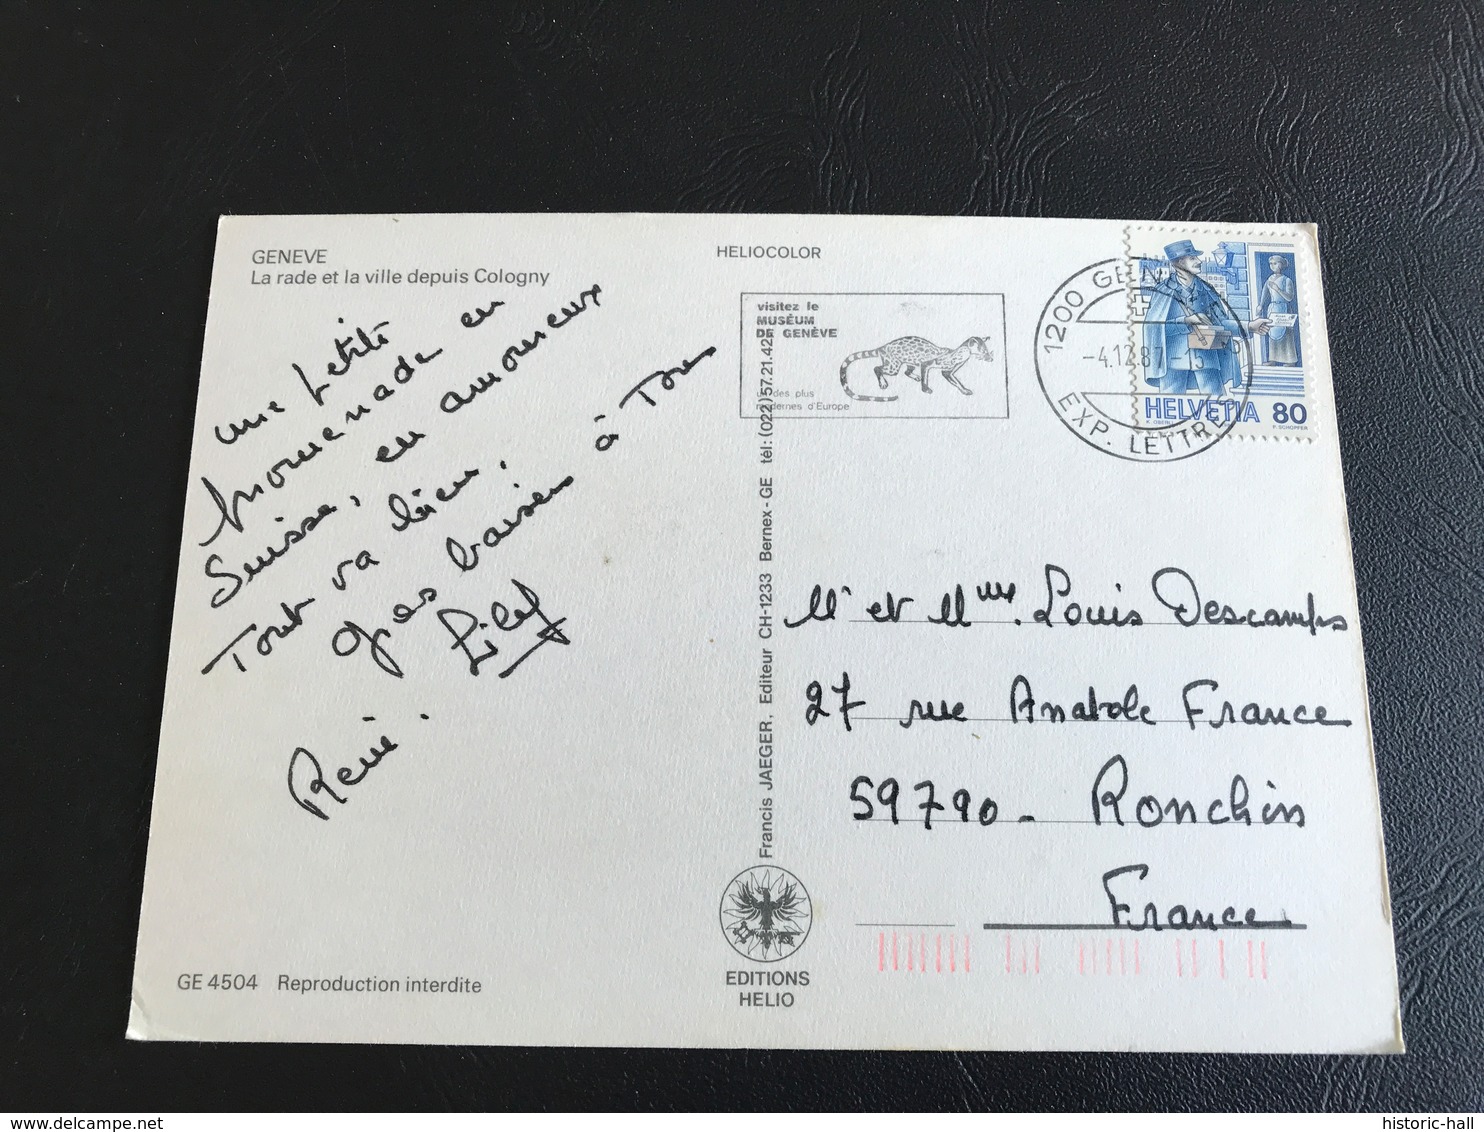 GENEVE
La rade et la ville depuis Cologny
une petite
promenade en
Suisse, en amoureux
Tout va bien,
gros baisers à Tous
René.
HELIOCOLOR
visitez le
MUSÉUM
DE GENÈVE
un des plus
modernes d'Europe
1200 GENÈVE
-4.12.87-15
EXP. LETTRES
HELVETIA 80
K. OBERLI P. SCHOPFER
Francis JAEGER, Editeur CH-1233 Bernex - GE tél: (022) 57.21.42
Mr et Mme. Louis Descamps
27 rue Anatole France
59790 - Ronchin
France
EDITIONS
HELIO
GE 4504 Reproduction interdite
historic-hall
delcampe.net